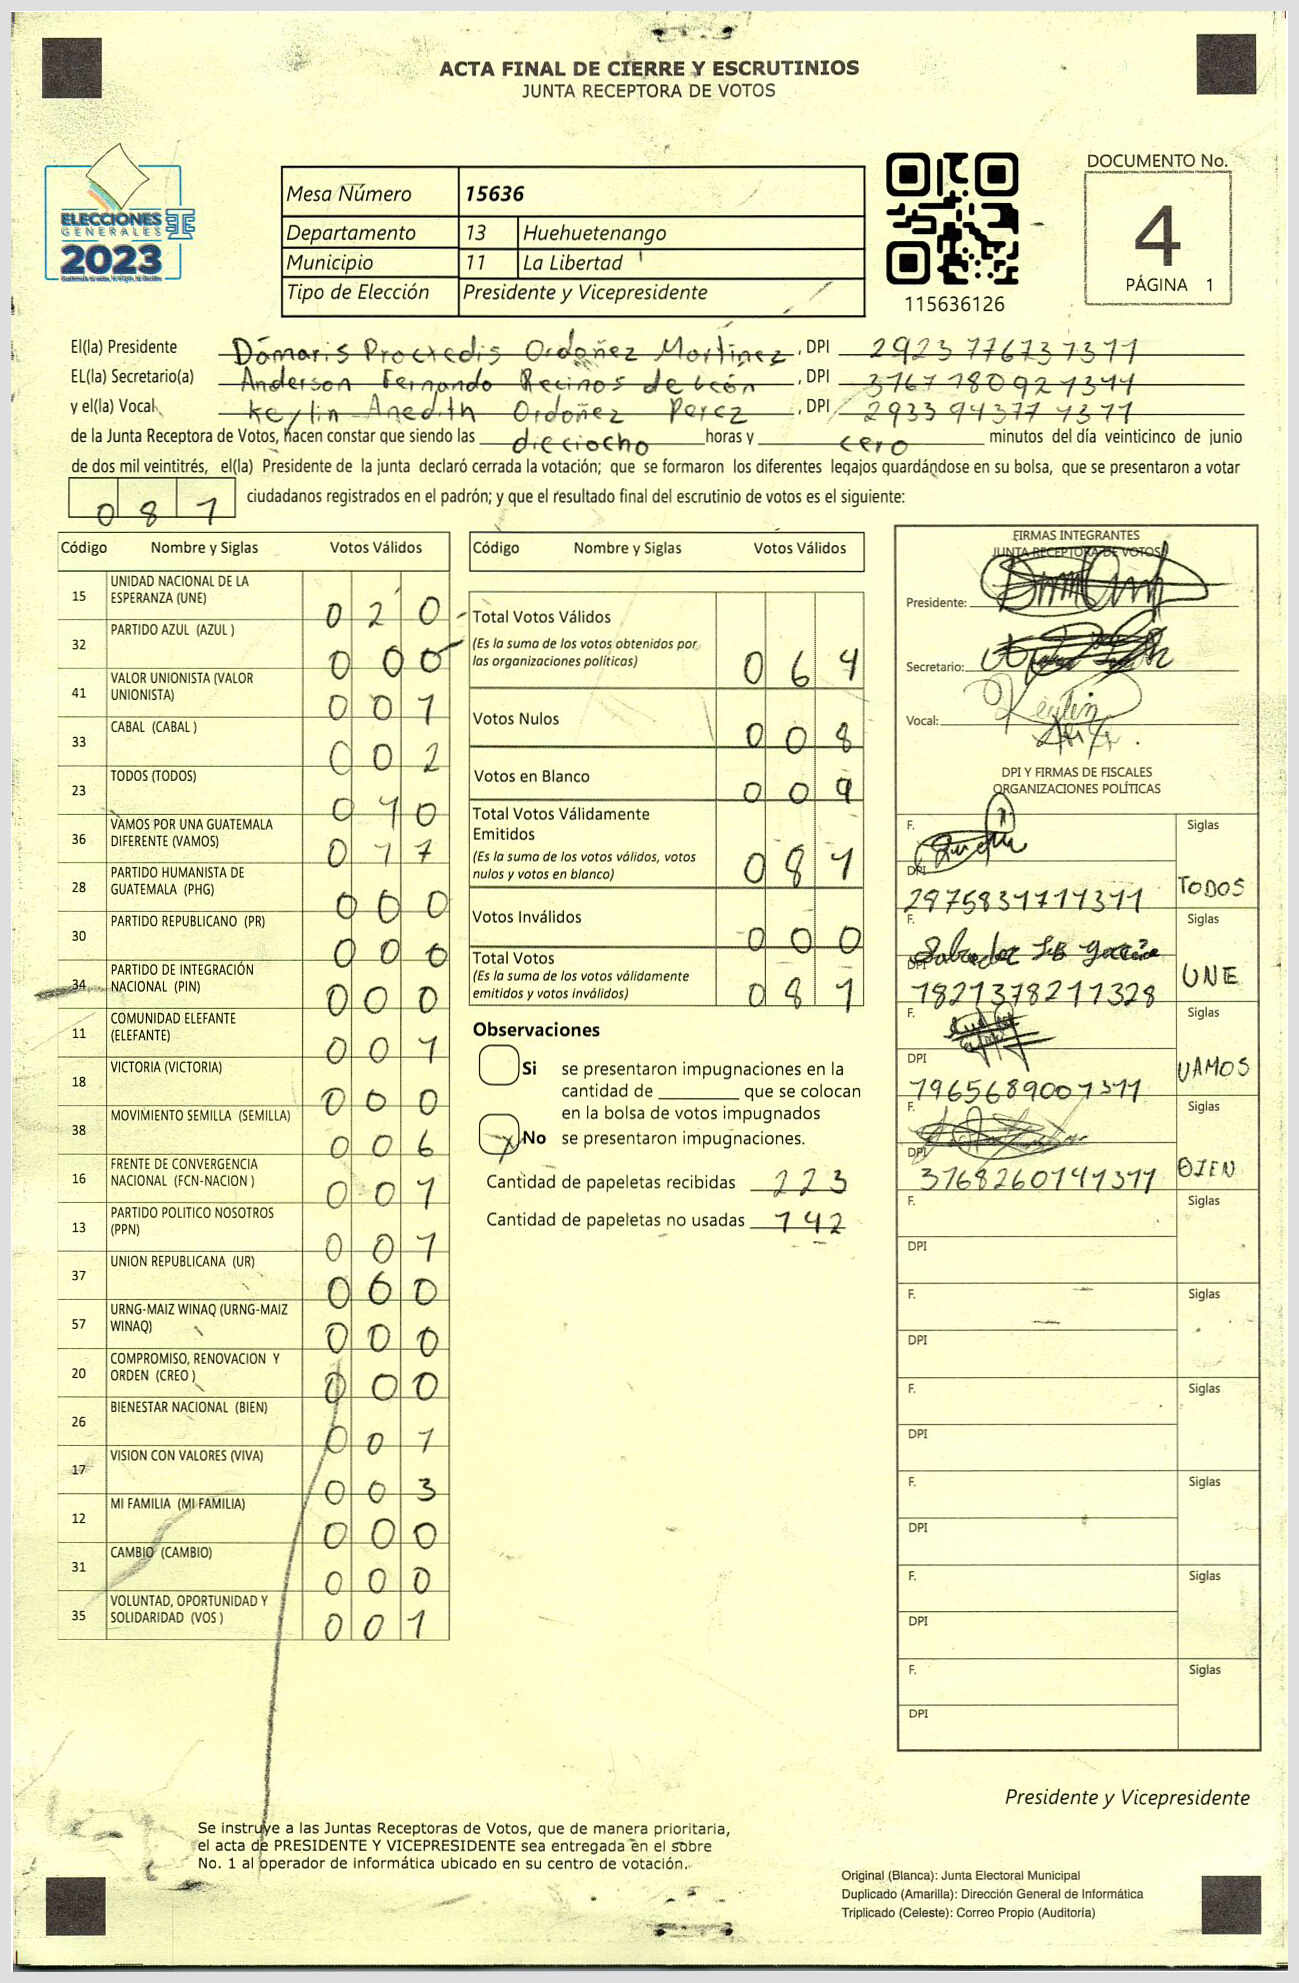 ACTA FINAL DE CIERRE Y ESCRUTINIOS
JUNTA RECEPTORA DE VOTOS
ELECCIONES
GENERALES
2023
Mesa Número 15636
Departamento 13 Huehuetenango
Municipio 11 La Libertad
Tipo de Elección Presidente y Vicepresidente
115636126
DOCUMENTO No.
4
PÁGINA 1
El(la) Presidente Dámaris Procxedis Ordoñez Martinez, DPI 2923776731311
EL(la) Secretario(a) Anderson Fernando Recinos de León, DPI
y el(la) Vocal Keylin Anedith Ordoñez Perez, DPI
de la Junta Receptora de Votos, hacen constar que siendo las dieciocho horas y cero minutos del día veinticinco de junio
de dos mil veintitrés, el(la) Presidente de la junta declaró cerrada la votación; que se formaron los diferentes legajos guardándose en su bolsa, que se presentaron a votar
081 ciudadanos registrados en el padrón; y que el resultado final del escrutinio de votos es el siguiente:
Código Nombre y Siglas Votos Válidos
15 UNIDAD NACIONAL DE LA ESPERANZA (UNE) 020
32 PARTIDO AZUL (AZUL ) 000
41 VALOR UNIONISTA (VALOR UNIONISTA) 001
33 CABAL (CABAL ) 002
23 TODOS (TODOS) 010
36 VAMOS POR UNA GUATEMALA DIFERENTE (VAMOS) 017
28 PARTIDO HUMANISTA DE GUATEMALA (PHG) 000
30 PARTIDO REPUBLICANO (PR) 000
34 PARTIDO DE INTEGRACIÓN NACIONAL (PIN) 000
11 COMUNIDAD ELEFANTE (ELEFANTE) 001
18 VICTORIA (VICTORIA) 000
38 MOVIMIENTO SEMILLA (SEMILLA) 006
16 FRENTE DE CONVERGENCIA NACIONAL (FCN-NACION ) 001
13 PARTIDO POLITICO NOSOTROS (PPN) 001
37 UNION REPUBLICANA (UR) 000
57 URNG-MAIZ WINAQ (URNG-MAIZ WINAQ) 000
20 COMPROMISO, RENOVACION Y ORDEN (CREO ) 000
26 BIENESTAR NACIONAL (BIEN) 001
17 VISION CON VALORES (VIVA) 003
12 MI FAMILIA (MI FAMILIA) 000
31 CAMBIO (CAMBIO) 000
35 VOLUNTAD, OPORTUNIDAD Y SOLIDARIDAD (VOS ) 001
Código Nombre y Siglas Votos Válidos
Total Votos Válidos
(Es la suma de los votos obtenidos por
las organizaciones políticas) 064
Votos Nulos 008
Votos en Blanco 009
Total Votos Válidamente
Emitidos
(Es la suma de los votos válidos, votos
nulos y votos en blanco) 081
Votos Inválidos 000
Total Votos
(Es la suma de los votos válidamente
emitidos y votos inválidos) 081
Observaciones
Si se presentaron impugnaciones en la
cantidad de ________ que se colocan
en la bolsa de votos impugnados
x No se presentaron impugnaciones.
Cantidad de papeletas recibidas 223
Cantidad de papeletas no usadas 142
FIRMAS INTEGRANTES
JUNTA RECEPTORA DE VOTOS
Presidente:
Secretario:
Vocal: Keylin
DPI Y FIRMAS DE FISCALES
ORGANIZACIONES POLÍTICAS
F. Siglas
DPI 2975831711311 TODOS
F. Siglas
DPI 1821378211328 UNE
F. Siglas
DPI 1965689001311 VAMOS
F. Siglas
DPI 3168260141311 BIEN
F. Siglas
DPI
F. Siglas
DPI
F. Siglas
DPI
F. Siglas
DPI
F. Siglas
DPI
F. Siglas
DPI
Presidente y Vicepresidente
Se instruye a las Juntas Receptoras de Votos, que de manera prioritaria,
el acta de PRESIDENTE Y VICEPRESIDENTE sea entregada en el sobre
No. 1 al operador de informática ubicado en su centro de votación.
Original (Blanca): Junta Electoral Municipal
Duplicado (Amarilla): Dirección General de Informática
Triplicado (Celeste): Correo Propio (Auditoría)